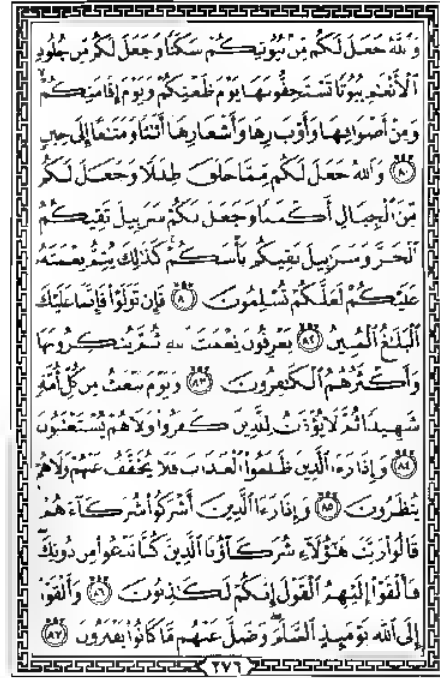 وَٱللَّهُ جَعَلَ لَكُم مِّنۢ بُيُوتِكُمْ سَكَنًا وَجَعَلَ لَكُم مِّن جُلُودِ
ٱلْأَنْعَـٰمِ بُيُوتًا تَسْتَخِفُّونَهَا يَوْمَ ظَعْنِكُمْ وَيَوْمَ إِقَامَتِكُمْ
وَمِنْ أَصْوَافِهَا وَأَوْبَارِهَا وَأَشْعَارِهَآ أَثَـٰثًا وَمَتَـٰعًا إِلَىٰ حِينٍ
﴿٨٠﴾ وَٱللَّهُ جَعَلَ لَكُم مِّمَّا خَلَقَ ظِلَـٰلًا وَجَعَلَ لَكُم
مِّنَ ٱلْجِبَالِ أَكْنَـٰنًا وَجَعَلَ لَكُمْ سَرَٰبِيلَ تَقِيكُمُ
ٱلْحَرَّ وَسَرَٰبِيلَ تَقِيكُم بَأْسَكُمْ كَذَٰلِكَ يُتِمُّ نِعْمَتَهُۥ
عَلَيْكُمْ لَعَلَّكُمْ تُسْلِمُونَ ﴿٨١﴾ فَإِن تَوَلَّوْا۟ فَإِنَّمَا عَلَيْكَ
ٱلْبَلَـٰغُ ٱلْمُبِينُ ﴿٨٢﴾ يَعْرِفُونَ نِعْمَتَ ٱللَّهِ ثُمَّ يُنكِرُونَهَا
وَأَكْثَرُهُمُ ٱلْكَـٰفِرُونَ ﴿٨٣﴾ وَيَوْمَ نَبْعَثُ مِن كُلِّ أُمَّةٍ
شَهِيدًا ثُمَّ لَا يُؤْذَنُ لِلَّذِينَ كَفَرُوا۟ وَلَا هُمْ يُسْتَعْتَبُونَ
﴿٨٤﴾ وَإِذَا رَءَا ٱلَّذِينَ ظَلَمُوا۟ ٱلْعَذَابَ فَلَا يُخَفَّفُ عَنْهُمْ وَلَا هُمْ
يُنظَرُونَ ﴿٨٥﴾ وَإِذَا رَءَا ٱلَّذِينَ أَشْرَكُوا۟ شُرَكَآءَهُمْ
قَالُوا۟ رَبَّنَا هَـٰٓؤُلَآءِ شُرَكَآؤُنَا ٱلَّذِينَ كُنَّا نَدْعُوا۟ مِن دُونِكَ
فَأَلْقَوْا۟ إِلَيْهِمُ ٱلْقَوْلَ إِنَّكُمْ لَكَـٰذِبُونَ ﴿٨٦﴾ وَأَلْقَوْا۟
إِلَى ٱللَّهِ يَوْمَئِذٍ ٱلسَّلَمَ وَضَلَّ عَنْهُم مَّا كَانُوا۟ يَفْتَرُونَ ﴿٨٧﴾
٢٧٦